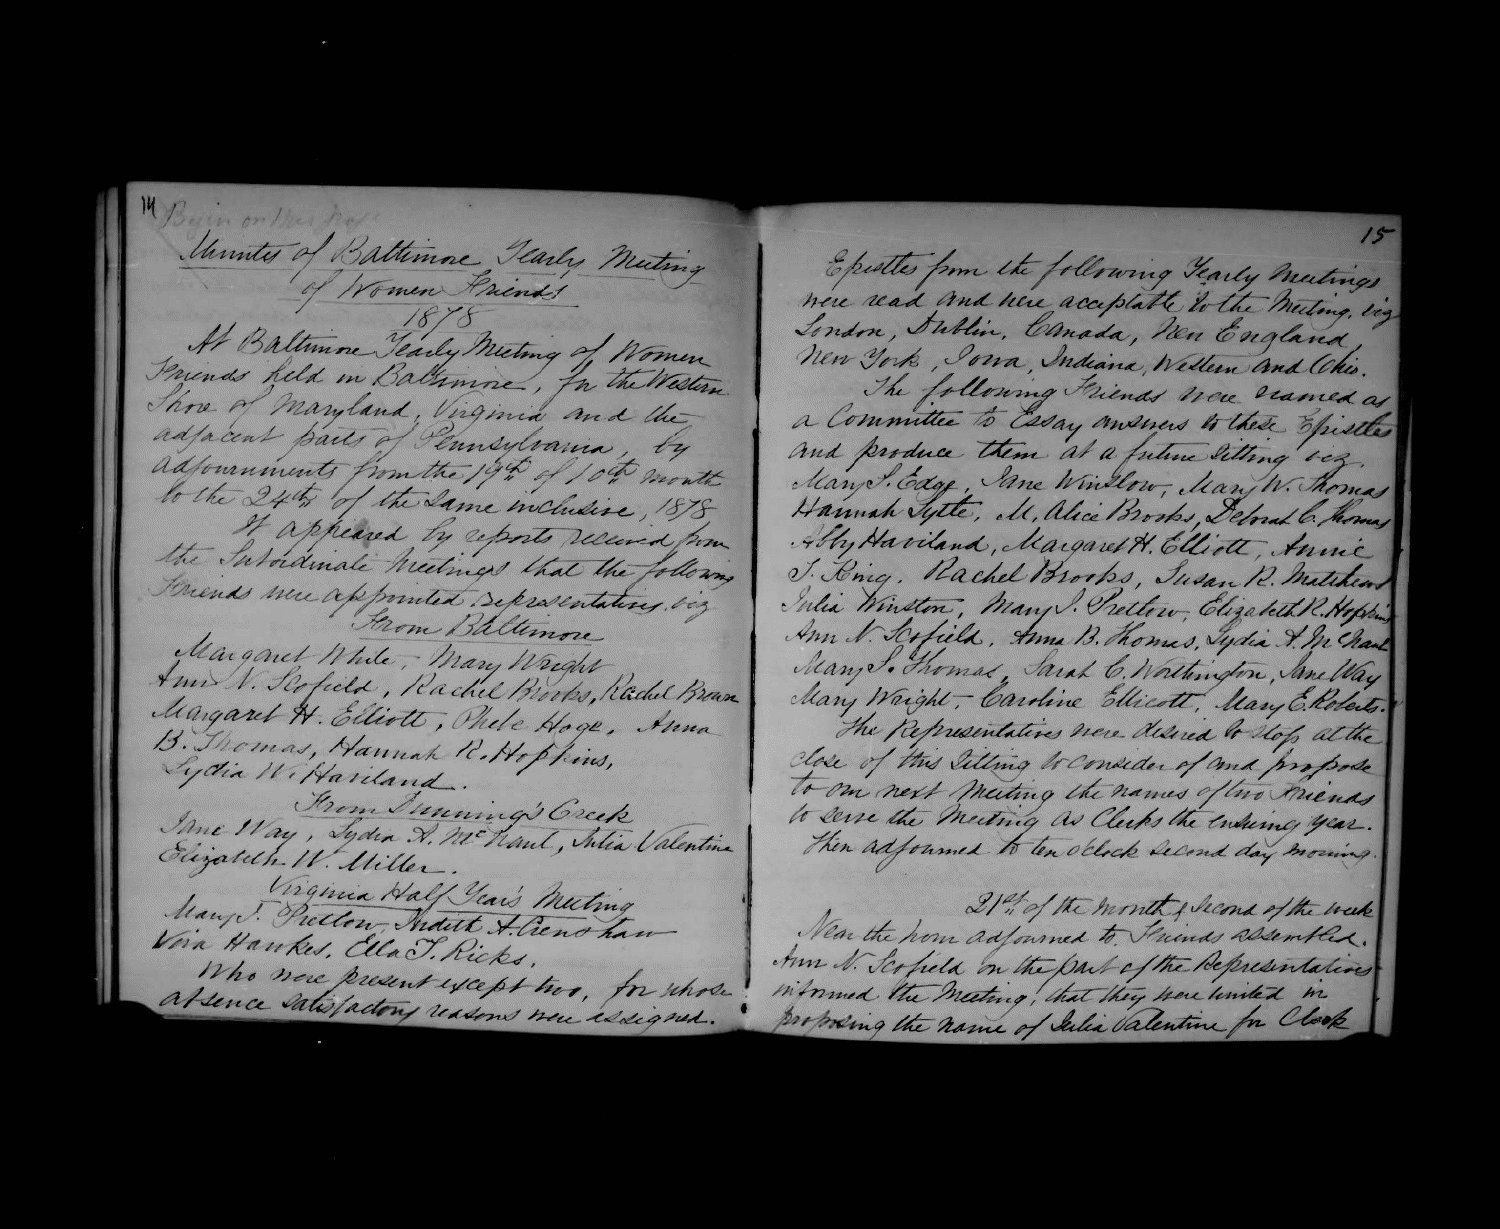 14
Begin on this page
Minutes of Baltimore Yearly Meeting
of Women Friends
1878
At Baltimore Yearly Meeting of Women
Friends held in Baltimore, for the Western
Shore of Maryland, Virginia and the
adjacent parts of Pennsylvania, by
adjournments from the 19th of 10th month
to the 24th of the same inclusive, 1878
It appeared by reports received from
the Subordinate Meetings that the following
Friends were appointed representatives, viz
From Baltimore
Margaret White, Mary Wright
Ann N. Scofield, Rachel Brooks, Rachel Brown
Margaret H. Elliott, Phebe Hoge, Anna
B. Thomas, Hannah R. Hopkins,
Lydia W. Haviland.
From Dunning's Creek
Jane Way, Lydia A. McNaul, Julia Valentine
Elizabeth W. Miller.
Virginia Half Year's Meeting
Mary J. Pretlow, Judith A. Crenshaw
Hawkes, Ella T. Ricks.
Who were present except two, for whose
absence satisfactory reasons were assigned.
15
Epistles from the following Yearly Meetings
were read and were acceptable to the Meeting, viz
London, Dublin, Canada, New England,
New York, Iowa, Indiana, Western and Ohio.
The following Friends were named as
a Committee to Essay answers to these Epistles
and produce them at a future sitting viz.
Mary S. Edge, Jane Winslow, Mary W. Thomas
Hannah Lytle, M. Alice Brooks, Deborah C. Thomas
Abby Haviland, Margaret H. Elliott, Annie
T. King, Rachel Brooks, Susan R. Matthews
Julia Winston, Mary J. Pretlow, Elizabeth R. Hopkins
Ann N. Scofield, Anna B. Thomas, Lydia A. McNaul
Mary S. Thomas, Sarah C. Worthington, Jane Way
Mary Wright, Caroline Ellicott, Mary E. Roberts.
The Representatives were desired to stop at the
close of this sitting to consider of and propose
to our next Meeting the names of two Friends
to serve the Meeting as Clerks the ensuing year.
Then adjourned to ten o'clock second day morning.
21st of the month & second of the week
Near the hour adjourned to Friends assembled.
Ann N. Scofield on the part of the Representatives
informed the Meeting, that they were united in
proposing the name of Julia Valentine for Clerk